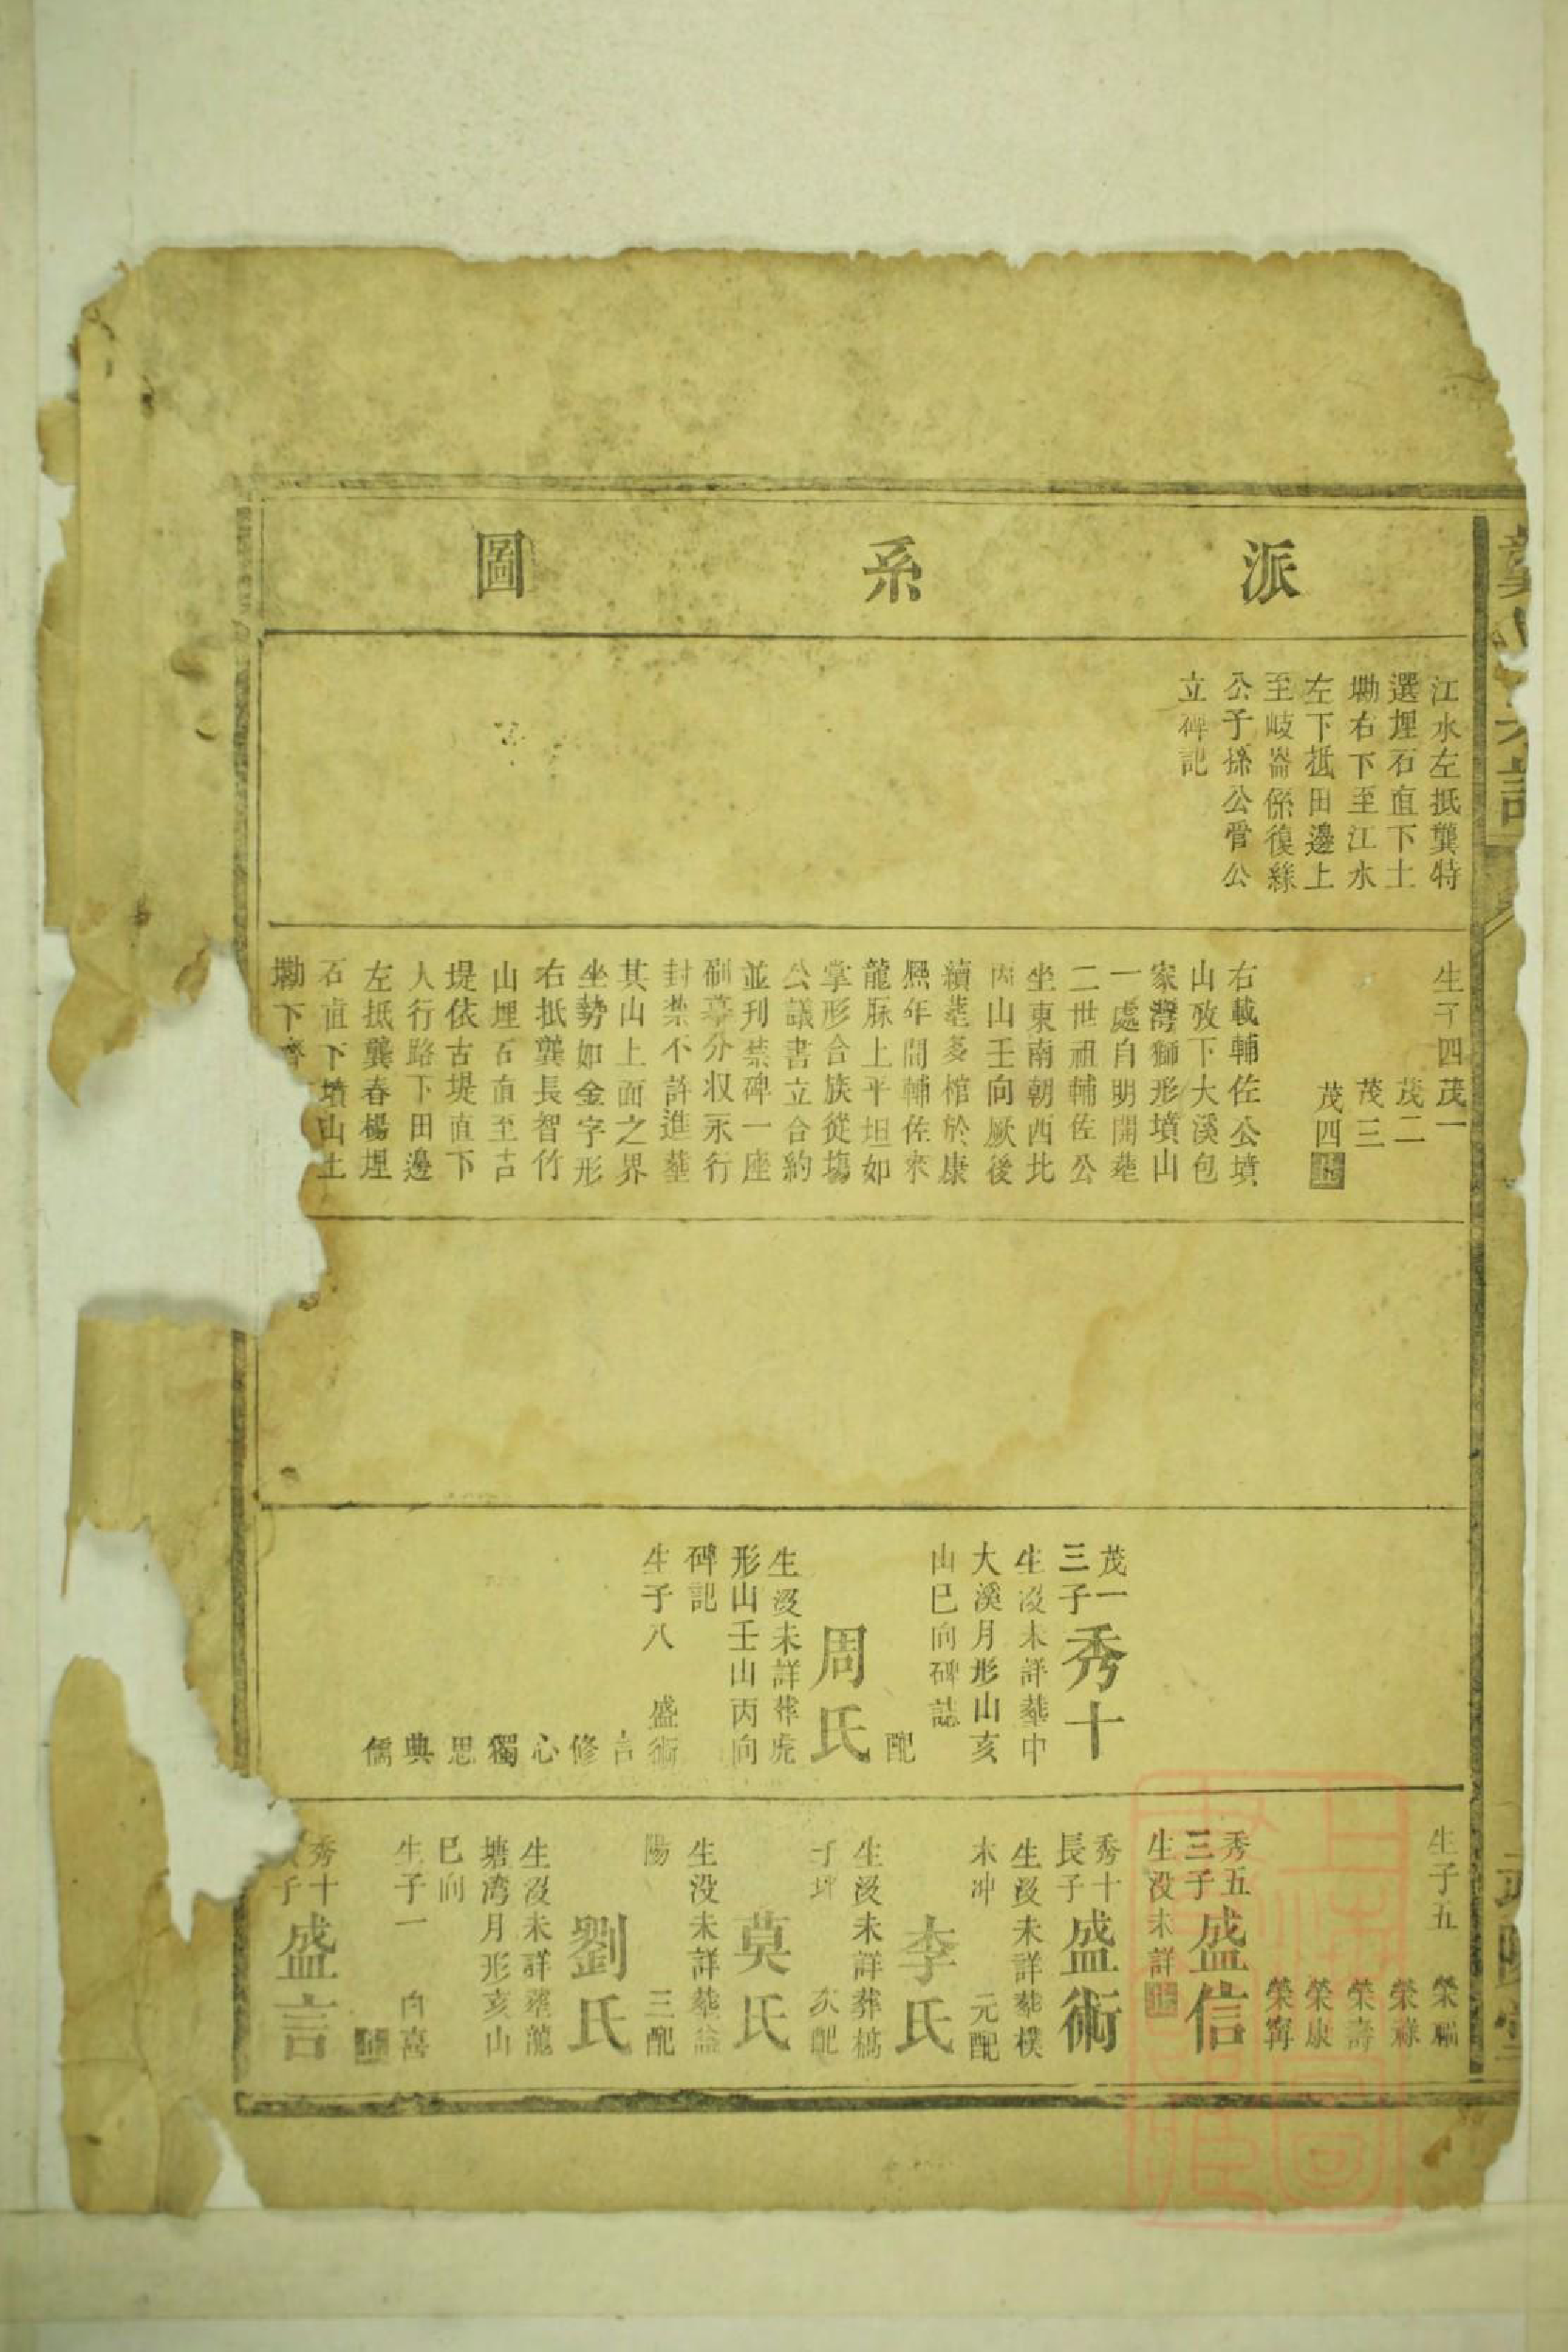 派系圖
江水左抵龔特
選埋石直下土
墈右下至江水
左下抵田邊上
至岐崙係復絲
公子孫公管公
立碑記
生子四茂一
茂二
茂三
茂四止
右載輔佐公墳
山攷下大溪包
家灣獅形墳山
一處自明開塟
二世祖輔佐公
坐東南朝西北
丙山壬向厥後
續塟多棺於康
熙年間輔佐來
龍脉上平坦如
掌形合族從塲
公議書立合約
並刊禁碑一座
嗣墓分収永行
封禁不許進塟
其山上面之界
坐勢如金字形
右抵龔長智竹
山埋石直至古
堤依古堤直下
人行路下田邊
左抵龔春楊埋
石直下墳山土
墈下齊
茂一
三子秀十
生沒未詳塟中
大溪月形山亥
山巳向碑誌
配
周氏
生沒未詳葬虎
形山壬山丙向
碑記
生子八 盛術
言
修
心
獨
思
典
儒
生子五 榮福
榮祿
榮壽
榮康
榮寗
秀五
三子盛信
生沒未詳止
秀十
長子盛術
生沒未詳塟樸
木冲 元配
李氏
生沒未詳葬槁
子坪 次配
莫氏
生沒未詳塟益
陽 三配
劉氏
生沒未詳塟龍
塘湾月形亥山
巳向
生子一 白喜
止
秀十
子盛言